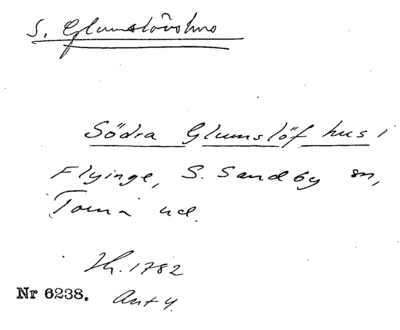 S. Glumslövshus
Södra Glumslöf hus i
Flyinge, S. Sandby sn,
Torna hd.
Jh. 1782
Nr 6238. Ant 4.